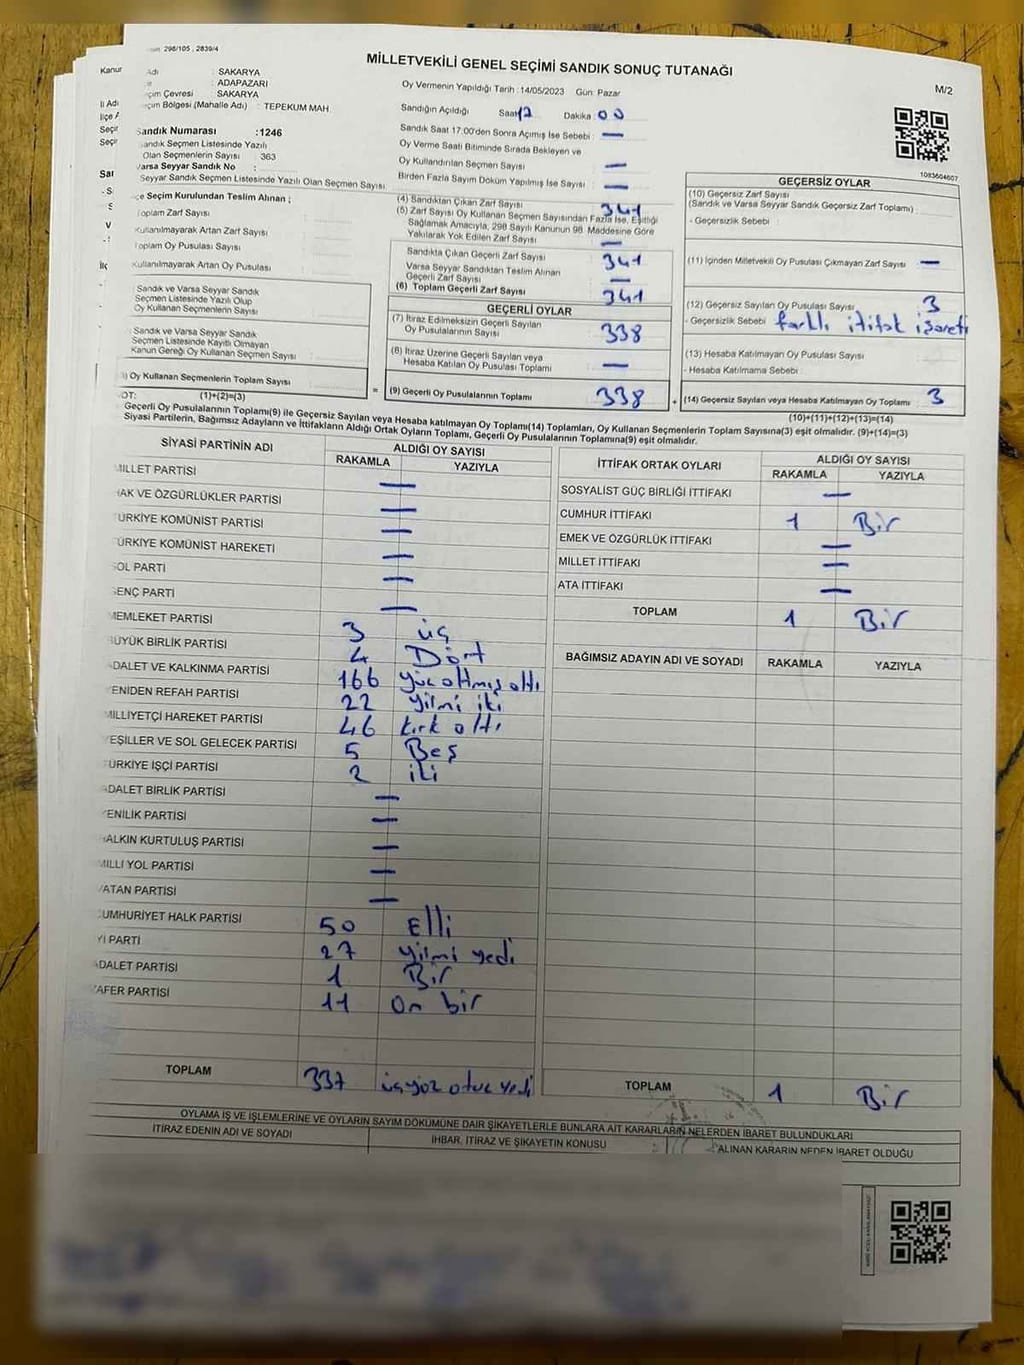 298/105 , 2839/4
MİLLETVEKİLİ GENEL SEÇİMİ SANDIK SONUÇ TUTANAĞI
M/2
Kanun
Adı : SAKARYA
: ADAPAZARI
çim Çevresi : SAKARYA
çim Bölgesi (Mahalle Adı) : TEPEKUM MAH.
Sandık Numarası :1246
Sandık Seçmen Listesinde Yazılı
Olan Seçmenlerin Sayısı : 363
Varsa Seyyar Sandık No :
Seyyar Sandık Seçmen Listesinde Yazılı Olan Seçmen Sayısı
Oy Vermenin Yapıldığı Tarih : 14/05/2023 Gün: Pazar
Sandığın Açıldığı Saat: 17 Dakika : 00
Sandık Saat 17:00'den Sonra Açılmış İse Sebebi : —
Oy Verme Saati Bitiminde Sırada Bekleyen ve
Oy Kullandırılan Seçmen Sayısı —
Birden Fazla Sayım Döküm Yapılmış İse Sayısı : —
1083604607
çe Seçim Kurulundan Teslim Alınan ;
Toplam Zarf Sayısı
Kullanılmayarak Artan Zarf Sayısı
Toplam Oy Pusulası Sayısı
Kullanılmayarak Artan Oy Pusulası
Sandık ve Varsa Seyyar Sandık
Seçmen Listesinde Yazılı Olup
Oy Kullanan Seçmenlerin Sayısı
Sandık ve Varsa Seyyar Sandık
Seçmen Listesinde Kayıtlı Olmayan
Kanun Gereği Oy Kullanan Seçmen Sayısı
) Oy Kullanan Seçmenlerin Toplam Sayısı
(1)+(2)=(3)
(4) Sandıktan Çıkan Zarf Sayısı 341
(5) Zarf Sayısı Oy Kullanan Seçmen Sayısından Fazla İse, Eşitliği
Sağlamak Amacıyla, 298 Sayılı Kanunun 98. Maddesine Göre
Yakılarak Yok Edilen Zarf Sayısı —
Sandıkta Çıkan Geçerli Zarf Sayısı 341
Varsa Seyyar Sandıktan Teslim Alınan
Geçerli Zarf Sayısı —
(6) Toplam Geçerli Zarf Sayısı 341
GEÇERLİ OYLAR
(7) İtiraz Edilmeksizin Geçerli Sayılan
Oy Pusulalarının Sayısı 338
(8) İtiraz Üzerine Geçerli Sayılan veya
Hesaba Katılan Oy Pusulası Toplamı —
= (9) Geçerli Oy Pusulalarının Toplamı 338 +
GEÇERSİZ OYLAR
(10) Geçersiz Zarf Sayısı
(Sandık ve Varsa Seyyar Sandık Geçersiz Zarf Toplamı) :
- Geçersizlik Sebebi :
(11) İçinden Milletvekili Oy Pusulası Çıkmayan Zarf Sayısı —
(12) Geçersiz Sayılan Oy Pusulası Sayısı 3
- Geçersizlik Sebebi : farklı itifak işareti
(13) Hesaba Katılmayan Oy Pusulası Sayısı
- Hesaba Katılmama Sebebi :
(14) Geçersiz Sayılan veya Hesaba Katılmayan Oy Toplamı 3
(10)+(11)+(12)+(13)=(14)
OT:
Geçerli Oy Pusulalarının Toplamı(9) ile Geçersiz Sayılan veya Hesaba katılmayan Oy Toplamı(14) Toplamları, Oy Kullanan Seçmenlerin Toplam Sayısına(3) eşit olmalıdır. (9)+(14)=(3)
Siyasi Partilerin, Bağımsız Adayların ve İttifakların Aldığı Ortak Oyların Toplamı, Geçerli Oy Pusulalarının Toplamına(9) eşit olmalıdır.
SİYASİ PARTİNİN ADI ALDIĞI OY SAYISI
RAKAMLA YAZIYLA
MİLLET PARTİSİ —
HAK VE ÖZGÜRLÜKLER PARTİSİ —
TÜRKİYE KOMÜNİST PARTİSİ —
TÜRKİYE KOMÜNİST HAREKETİ —
SOL PARTİ —
GENÇ PARTİ —
MEMLEKET PARTİSİ 3 üç
BÜYÜK BİRLİK PARTİSİ 4 Dört
ADALET VE KALKINMA PARTİSİ 166 yüz altmış altı
YENİDEN REFAH PARTİSİ 22 yilmi iki
MİLLİYETÇİ HAREKET PARTİSİ 46 kırk altı
YEŞİLLER VE SOL GELECEK PARTİSİ 5 Beş
TÜRKİYE İŞÇİ PARTİSİ 2 iki
ADALET BİRLİK PARTİSİ —
YENİLİK PARTİSİ —
HALKIN KURTULUŞ PARTİSİ —
MİLLİ YOL PARTİSİ —
VATAN PARTİSİ —
CUMHURİYET HALK PARTİSİ 50 Elli
İYİ PARTİ 27 yilmi yedi
ADALET PARTİSİ 1 Bir
ZAFER PARTİSİ 11 On bir
TOPLAM 337 üçyüz otuz yedi
İTTİFAK ORTAK OYLARI ALDIĞI OY SAYISI
RAKAMLA YAZIYLA
SOSYALİST GÜÇ BİRLİĞİ İTTİFAKI —
CUMHUR İTTİFAKI 1 Bir
EMEK VE ÖZGÜRLÜK İTTİFAKI —
MİLLET İTTİFAKI —
ATA İTTİFAKI —
TOPLAM 1 Bir
BAĞIMSIZ ADAYIN ADI VE SOYADI RAKAMLA YAZIYLA
TOPLAM 1 Bir
OYLAMA İŞ VE İŞLEMLERİNE VE OYLARIN SAYIM DÖKÜMÜNE DAİR ŞİKAYETLERLE BUNLARA AİT KARARLARIN NELERDEN İBARET BULUNDUKLARI
İTİRAZ EDENİN ADI VE SOYADI İHBAR, İTİRAZ VE ŞİKAYETİN KONUSU ALINAN KARARIN NEDEN İBARET OLDUĞU